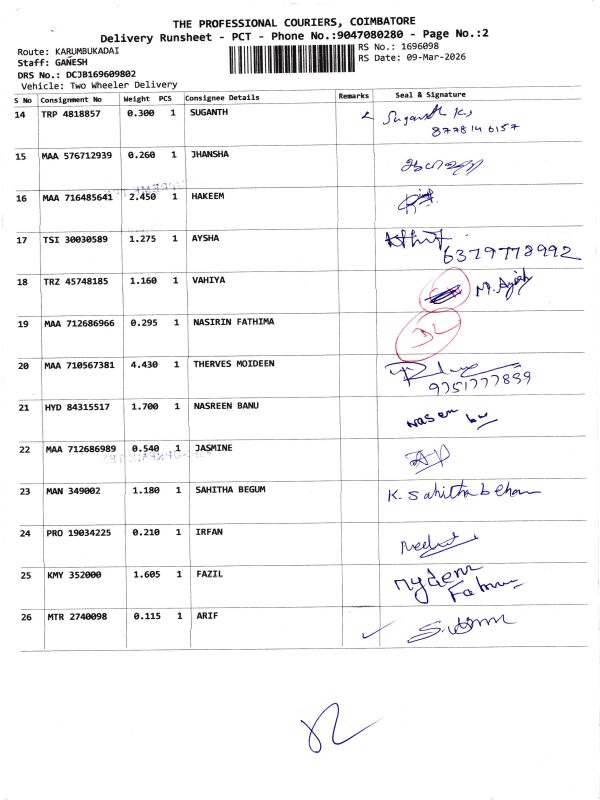 THE PROFESSIONAL COURIERS, COIMBATORE
Delivery Runsheet - PCT - Phone No.:9047080280 - Page No.:2
Route: KARUMBUKADAI RS No.: 1696098
Staff: GANESH RS Date: 09-Mar-2026
DRS No.: DCJB169609802
Vehicle: Two Wheeler Delivery
S No Consignment No Weight PCS Consignee Details Remarks Seal & Signature
14 TRP 4818857 0.300 1 SUGANTH Suganth K.
8778146157
15 MAA 576712939 0.260 1 JHANSHA
16 MAA 716485641 2.450 1 HAKEEM
17 TSI 30030589 1.275 1 AYSHA
6379778992
18 TRZ 45748185 1.160 1 VAHIYA
19 MAA 712686966 0.295 1 NASIRIN FATHIMA
20 MAA 710567381 4.430 1 THERVES MOIDEEN
9751777899
21 HYD 84315517 1.700 1 NASREEN BANU
22 MAA 712686989 0.540 1 JASMINE
23 MAN 349002 1.180 1 SAHITHA BEGUM K. Sahitha beham
24 PRO 19034225 0.210 1 IRFAN
25 KMY 352000 1.605 1 FAZIL
26 MTR 2740098 0.115 1 ARIF